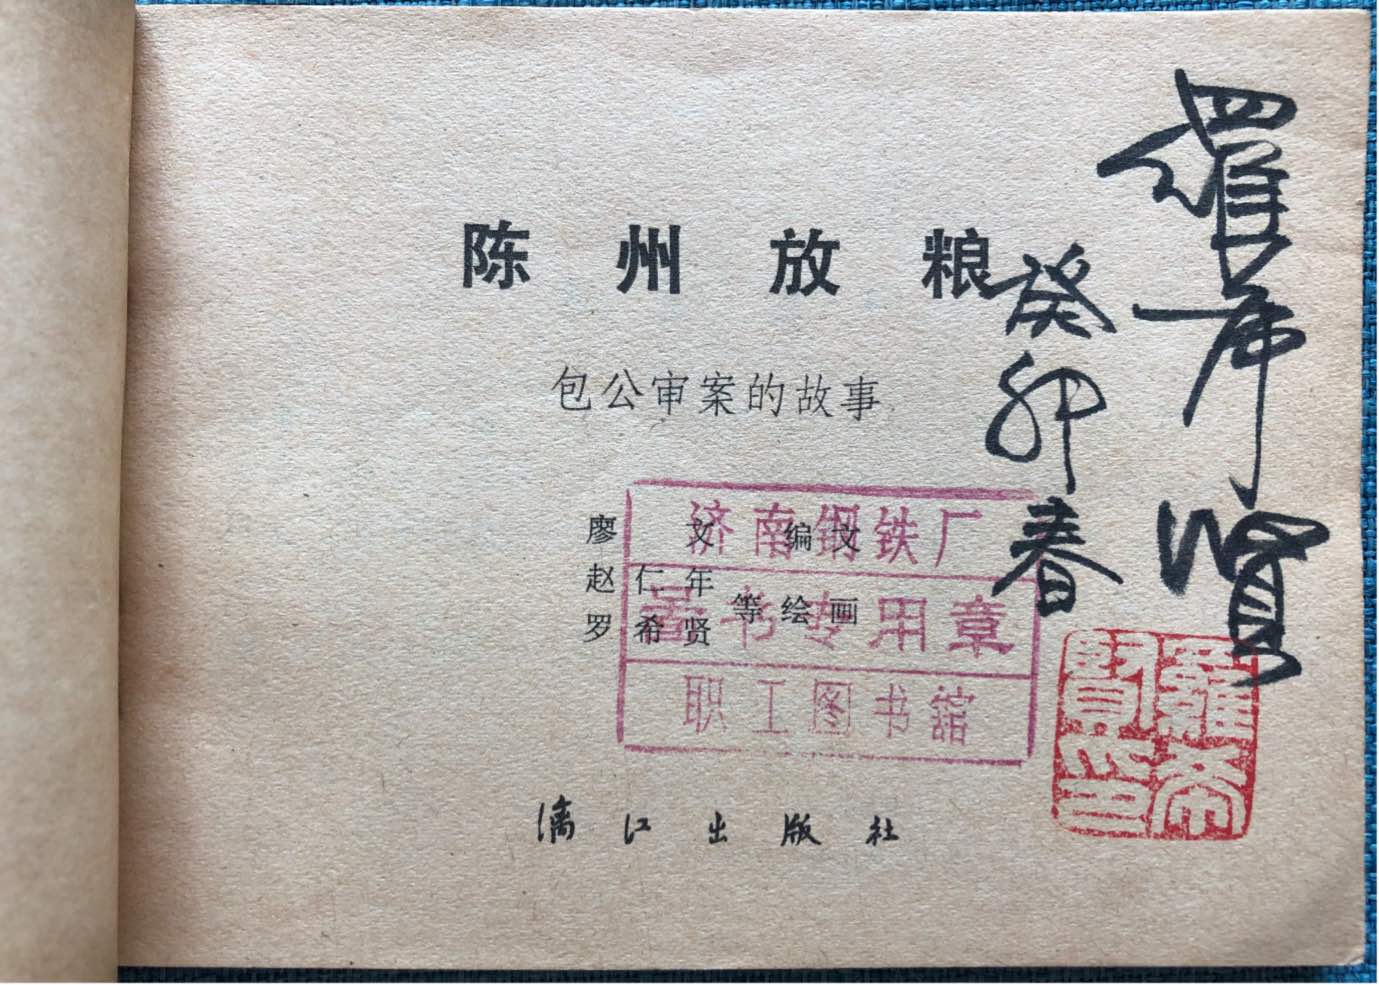 陈州放粮
包公审案的故事
廖文 编文
赵仁年
罗希贤 等绘画
漓江出版社
济南钢铁厂
图书专用章
职工图书館
羅希賢
癸卯春
羅希賢印